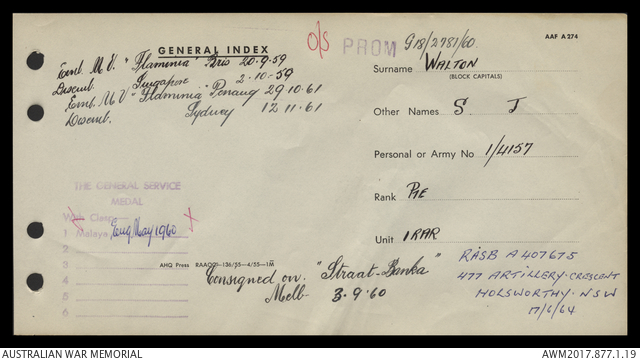 GENERAL INDEX
O/S
PROM
G18/2781/60
AAF A 274
Emb. M.V. "Flaminia" Bris 20.9.59
Disemb. Singapore 2.10.59
Emb. M V "Flaminia" Penang 29 10.61
Disemb. Sydney 12 11.61
Surname WALTON
(BLOCK CAPITALS)
Other Names S J
Personal or Army No 1/4157
Rank Pte
Unit 1 RAR
THE GENERAL SERVICE
MEDAL
With Clasp
1 Malaya May 1960
2
3
4
5
6
AHQ Press RAAOD-136/55-4/55-1M
Consigned on "Straat Banka"
Melb 3.9.60
RASB A407675
477 ARTILLERY CRESCENT
HOLSWORTHY. NSW
17/6/64
AUSTRALIAN WAR MEMORIAL
AWM2017.877.1.19